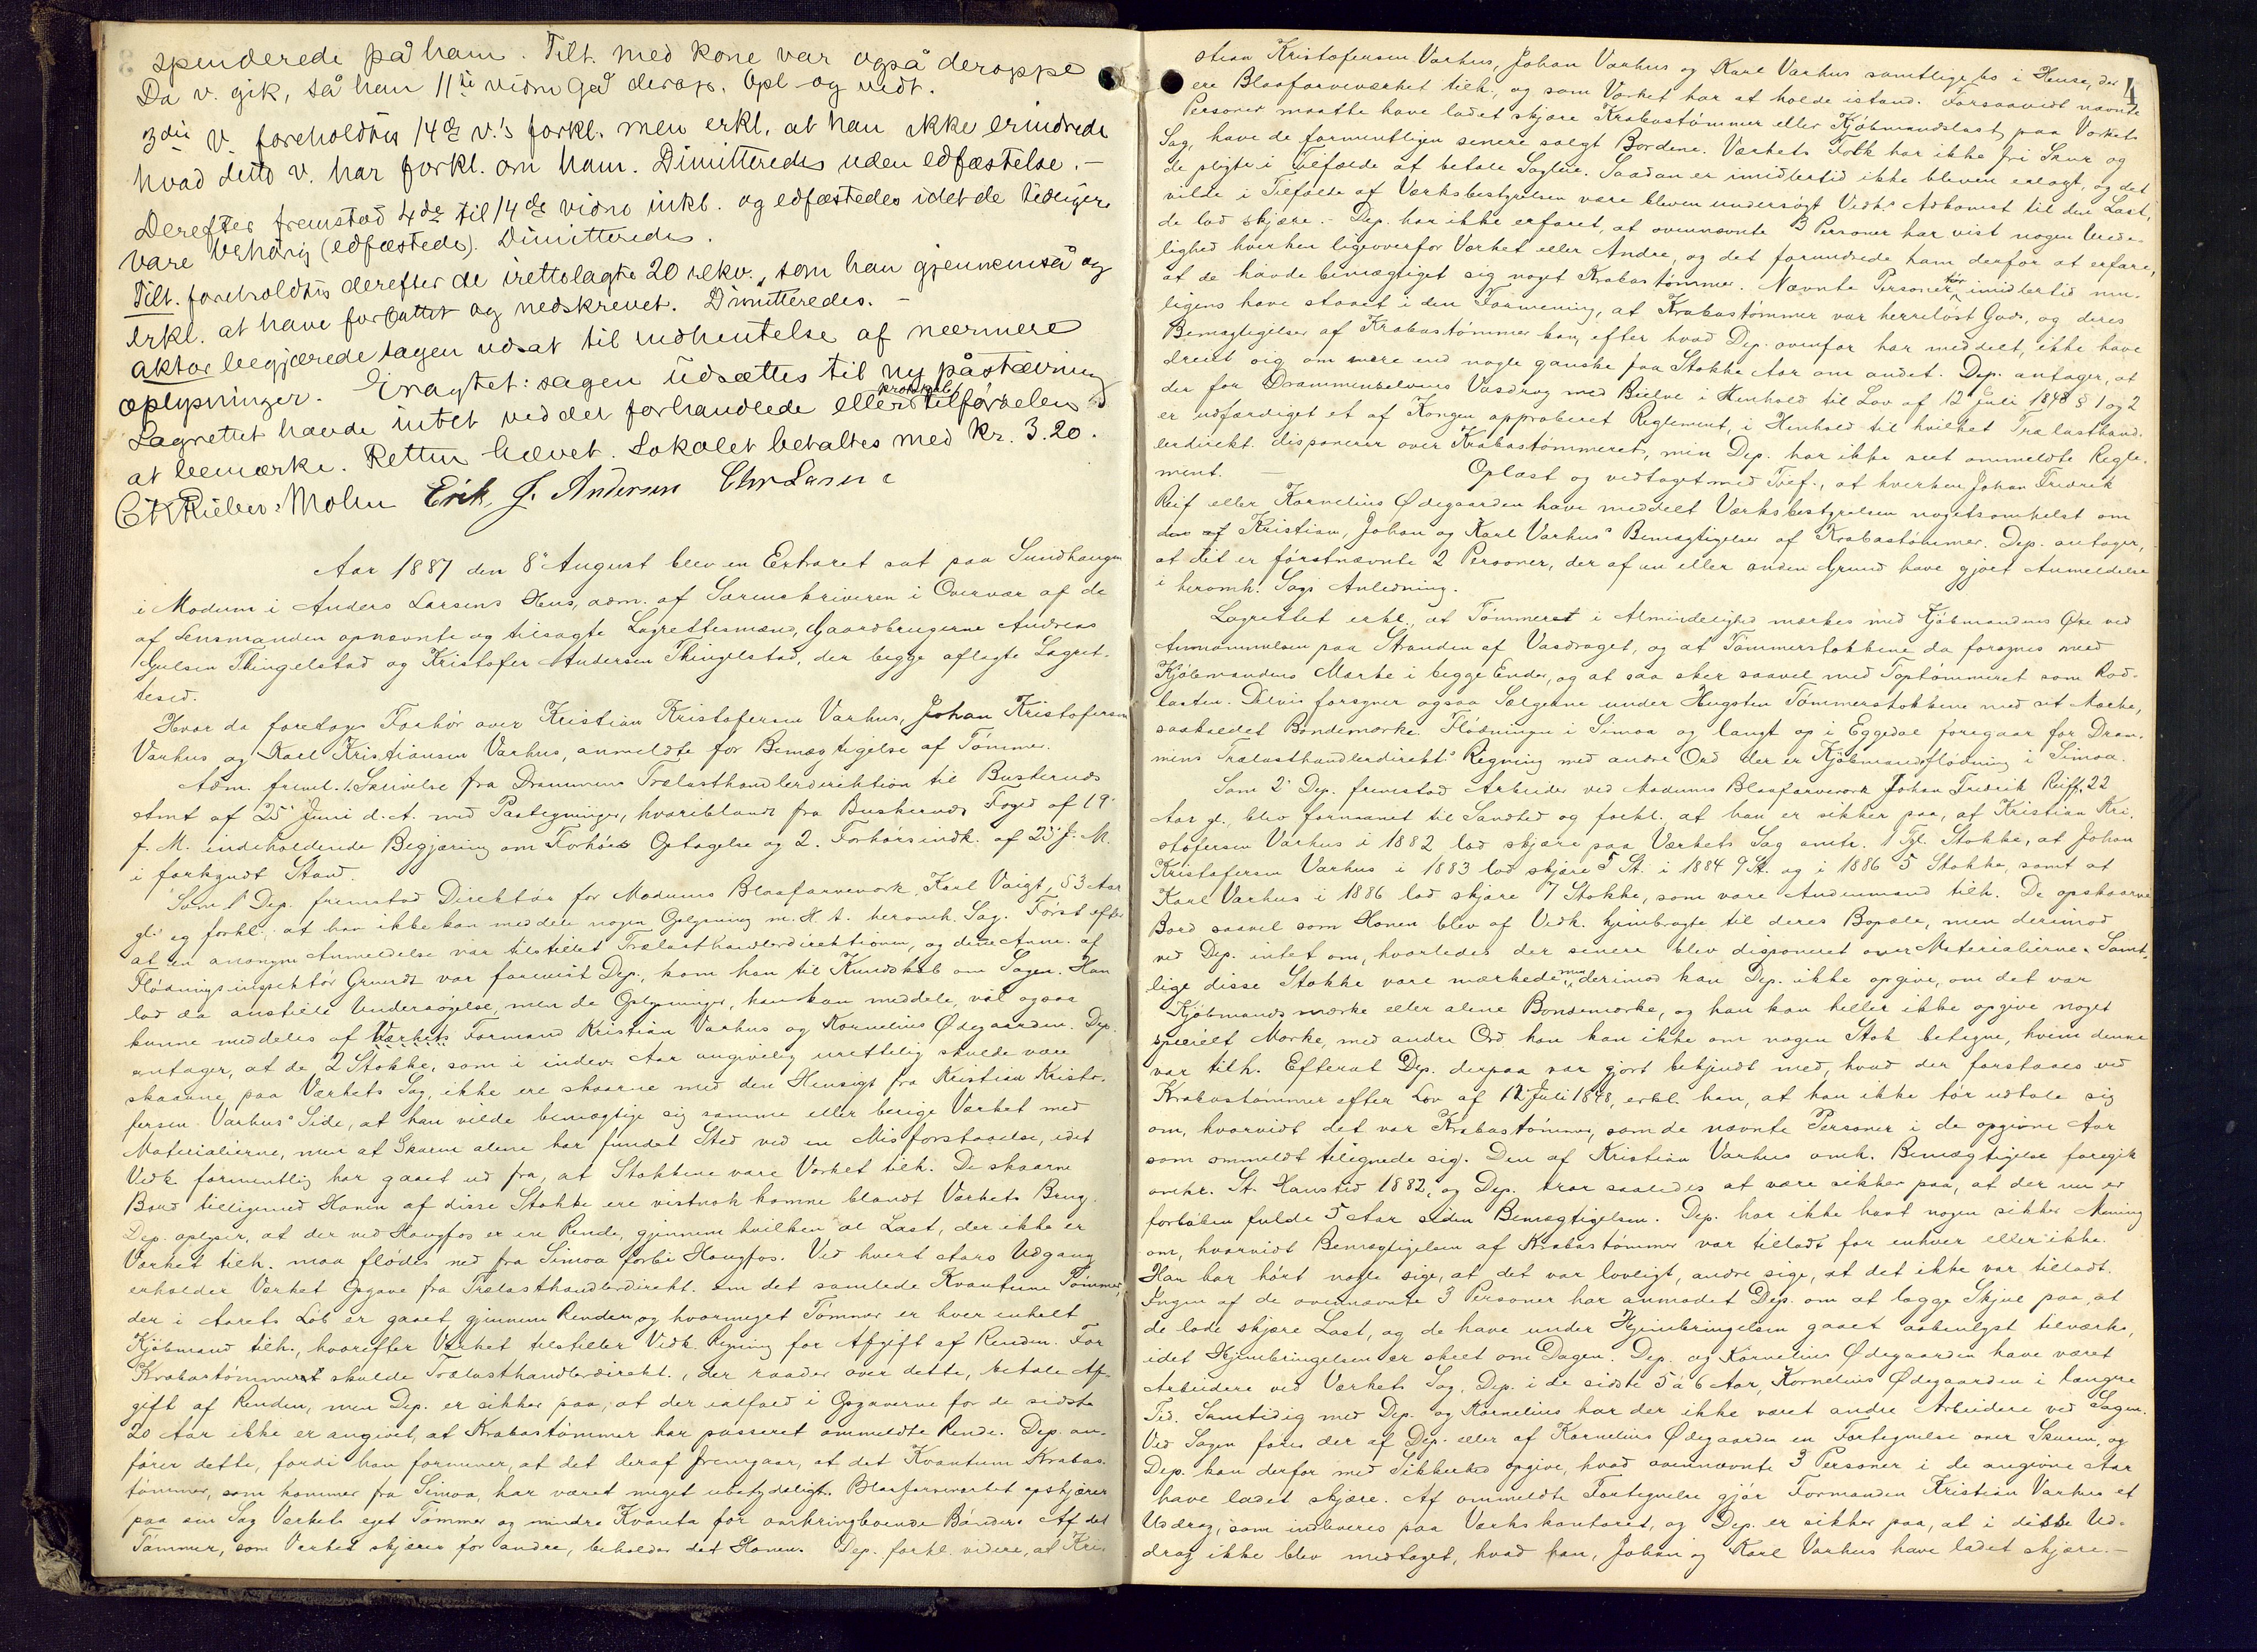 spenderede på ham. Tilt. med kone var også deroppe
Da v. gik, så han 11te vidne gå derop. Opl og vedt.
3die v. foreholdtes 14de v.'s forkl. men erkl. at han ikke erindrede
hvad dette v. har forkl. om ham. Dimitteredes uden edfæstelse. –
Derefter fremstod 4de til 14de vidne inkl. og edfæstedes idet de tidligere
vare uedhørig (edfæstede). Dimitteredes.
Tilt. foreholdtes derefter de irettelagte 20 rekv., som han gjennemså og
erkl. at have forfattet og nedskrevet. Dimitteredes. –
aktor begjærede sagen udsat til indhentelse af nærmere
oplysninger. Eragtet: sagen udsættes til ny påstævning
Lagrettet havde intet ved det forhandlede eller protokoltilførselen
at bemærke. Retten hævet. Lokalet betaltes med kr. 3.20.
CKRieber-Mohn Erik J. Andersen Chr Larsen
Aar 1887 den 8de August blev en Extraret sat paa Sundhaugen
i Modum i Anders Larsens Hus, adm. af Sorenskriveren i Overvær af de
af Lensmanden opnævnte og tilsagte Lagrettesmænd, Gaardbrugerne Andreas
Gulsen Thingelstad og Kristofer Andersen Thingelstad, der begge aflagte Lagret-
tesed.
Hvor da foretoges Forhør over Kristian Kristofersen Varhus, Johan Kristofersen
Varhus og Karl Kristiansen Varhus, anmeldte for Bemægtigelse af Tømmer.
Adm. freml. 1. Skrivelse fra Drammens Trælasthandlerdirektion til Buskeruds
Amt af 25de Juni d. A. med Paategninger, hvoriblandt fra Buskeruds Foged af 19de
f. M. indeholdende Begjæring om Forhørs Optagelse og 2. Forhørsindk. af 25de f. M.
i forkyndt Stand.
Som 1ste Dep. fremstod Direktør for Modums Blaafarveværk Karl Voigt, 53 Aar
gl. og forkl. at han ikke kan meddele nogen Oplysning m. H. t. heromh. Sag. Først efter
at en anonym Anmeldelse var tilstillet Trælasthandlerdirektionen, og denne Anm. af
Flødningsinspektør Grundt var forevist Dep., kom han til Kundskab om Sagen. Han
lod da anstille Undersøgelse, men de Oplysninger, han kan meddele, vil ogsaa
kunne meddeles af Værkets Formand Kristian Varhus og Kornelius Ødegaarden. Dep.
antager, at de 2 Stokke, som i indev. Aar angivelig urettelig skulde være
skaarne paa Værkets Sag, ikke ere skaarne med den Hensigt fra Kristian Kristo-
fersen Varhus' Side, at han vilde bemægtige sig samme eller berige Værket med
Materialierne, men at Skuren alene har fundet Sted ved en Misforstaaelse, idet
Vedk. formentlig har gaaet ud fra, at Stokkene vare Værket tilh. De skaarne
Bord tilligemed Honen af disse Stokke ere vistnok komne blandt Værkets Brug.
Dep. oplyser, at der ved Haugfos er en Rende, gjennem hvilken al Last, der ikke er
Værket tilh. maa flødes ned fra Simoa forbi Haugfos. Ved hvert Aars Udgang
erholder Værket Opgave fra Trælasthandlerdirekt. om det samlede Kvantum Tømmer,
der i Aarets Løb er gaaet gjennem Renden, og hvormeget Tømmer er hver enkelt
Kjøbmand tilh., hvorefter Værket tilstiller Vedk. Regning for Afgift af Renden. For
Krabastømmeret skulde Trælasthandlerdirekt., der raader over dette, betale Af-
gift af Renden, men Dep. er sikker paa, at der ialfald i Opgaverne for de sidste
20 Aar ikke er angivet, at Krabastømmer har passeret ommeldte Rende. Dep. an-
fører dette, fordi han formener, at det deraf fremgaar, at det Kvantum Krabas-
tømmer, som kommer fra Simoa, har været meget ubetydeligt. Blaafarveværket opskjærer
paa sin Sag Værkets eget Tømmer og mindre Kvanta for omkringboende Bønder. Af det
Tømmer, som Værket skjærer for andre, beholder det Honen. Dep. forkl. videre, at Kri-
4
stian Kristofersen Varhus, Johan Varhus og Karl Varhus samtlige bo i Huse, der
ere Blaafarveværket tilh., og som Værket har at holde istand. Forsaavidt nævnte
Personer maatte have ladet skjære Krabastømmer eller Kjøbmandslast paa Værkets
Sag, have de formentligen senere solgt Bordene. Værkets Folk har ikke fri Skur og
de pligte i Tilfælde at betale Sagleie. Saadan er imidlertid ikke bleven erlagt, og det
vilde i Tilfælde af Værksbestyrelsen være bleven undersøgt Vedk.s Adkomst til den Last,
de lod skjære. – Dep. har ikke erfaret, at ovennævnte 3 Personer har vist nogen Urede-
lighed hverken ligeoverfor Værket eller Andre, og det forundrede ham derfor at erfare,
at de havde bemægtiget sig noget Krabastømmer. Nævnte Personer tør imidlertid mu-
ligens have staaet i den Formening, at Krabastømmer var herreløst Gods, og deres
Bemægtigelse af Krabastømmer kan, efter hvad Dep. ovenfor har meddelt, ikke have
dreiet sig om mere end nogle ganske faa Stokke Aar om andet. Dep. antager, at
der for Drammenselvens Vasdrag med Bielve i Henhold til Lov af 12 Juli 1848 § 1 og 2
er udfærdiget et af Kongen approberet Reglement, i Henhold til hvilket Trælasthand-
lerdirekt. disponerer over Krabastømmeret, men Dep. har ikke seet ommeldte Regle-
ment. – Oplæst og vedtaget med Tøif., at hverken Johan Fredrik
Reif eller Kornelius Ødegaarden have meddelt Værksbestyrelsen nogetsomhelst om
den af Kristian, Johan og Karl Varhus' Bemægtigelse af Krabastømmer. Dep. antager,
at det er førstnævnte 2 Personer, der af en eller anden Grund have gjort Anmeldelse
i heromh. Sags Anledning.
Lagrettet erkl., at Tømmeret i Almindelighed mærkes med Kjøbmandens Øxe ved
Annammelsen paa Stranden af Vasdraget, og at Tømmerstokkene da forsynes med
Kjøbmandens Mærke i begge Ender, og at saa sker saavel med Toptømmeret som Rod-
lasten. Delvis forsyner ogsaa Sælgerne under Hugsten Tømmerstokkene med sit Mærke,
saakaldet Bondemærke. Flødningen i Simoa og langt op i Eggedal foregaar for Dram-
mens Trælasthandlerdirekts Regning med andre Ord der er Kjøbmandsflødning i Simoa.
Som 2den Dep. fremstod Arbeider ved Modums Blaafarveværk Johan Fredrik Reiff, 22
Aar gl., blev formanet til Sandhed og forkl. at han er sikker paa, at Kristian Kri-
stofersen Varhus i 1882 lod skjære paa Værkets Sag omtr. 1 Tyl. Stokke, at Johan
Kristofersen Varhus i 1883 lod skjære 5 St. i 1884 9 St. og i 1886 5 Stokke, samt at
Karl Varhus i 1886 lod skjære 7 Stokke, som vare Andenmand tilh. De opskaarne
Bord saavel som Honen blev af Vedk. hjembragte til deres Bopæle, men derimod
ved Dep. intet om, hvorledes der senere blev disponeret over Materialierne. Samt-
lige disse Stokke vare mærkede, men derimod kan Dep. ikke opgive, om det var
Kjøbmandsmærke eller alene Bondemærke, og han kan heller ikke opgive noget
specielt Mærke, med andre Ord han kan ikke om nogen Stok betegne, hvem denne
var tilh. Efterat Dep. derpaa var gjort bekjendt med, hvad der forstaaes ved
Krabastømmer efter Lov af 12 Juli 1848, erkl. han, at han ikke tør udtale sig
om, hvorvidt det var Krabastømmer, som de nævnte Personer i de opgivne Aar
som ommeldt tilegnede sig. Den af Kristian Varhus omh. Bemægtigelse foregik
omkr. St. Hanstid 1882, og Dep. tror saaledes at være sikker paa, at der nu er
forløben fulde 5 Aar siden Bemægtigelsen. Dep. har ikke havt nogen sikker Mening
om, hvorvidt Bemægtigelsen af Krabastømmer var tilladt for enhver eller ikke.
Han har hørt nogle sige, at det var lovligt, andre sige, at det ikke var tilladt.
Ingen af de ovennævnte 3 Personer har anmodet Dep. om at lægge Skjul paa, at
de lode skjære Last, og de have under Hjembringelsen gaaet aabenlyst tilværks,
idet Hjembringelsen er skeet om Dagen. Dep. og Kornelius Ødegaarden have været
Arbeidere ved Værkets Sag, Dep. i de sidste 5 à 6 Aar, Kornelius Ødegaarden i længre
Tid. Samtidig med Dep. og Kornelius har der ikke været andre Arbeidere ved Sagen.
Ved Sagen føres der af Dep. eller af Kornelius Ødegaarden en Fortegnelse over Skuren, og
Dep. kan derfor med Sikkerhed opgive, hvad ovennævnte 3 Personer i de angivne Aar
have ladet skjære. Af ommeldte Fortegnelse gjør Formanden Kristian Varhus et
Uddrag, som indleveres paa Værkskontoret, og Dep. er sikker paa, at i disse Ud-
drag ikke blev medtaget, hvad han, Johan og Karl Varhus have ladet skjære. –